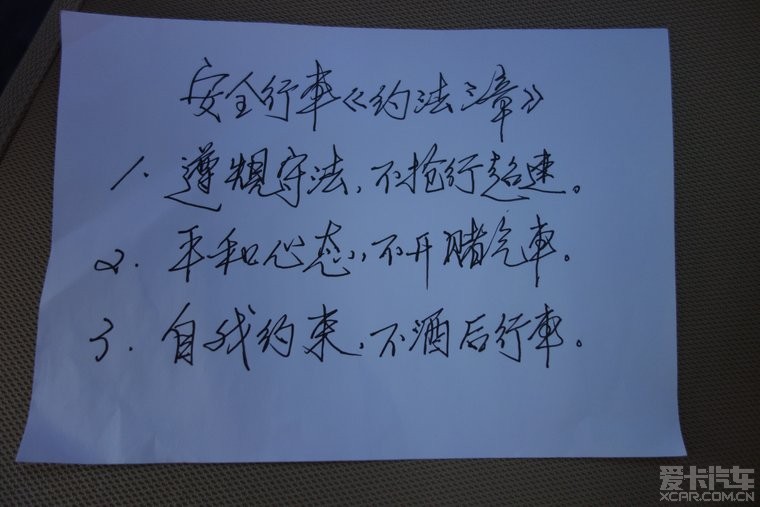 安全行車《约法三章》
1. 遵规守法,不抢行超速。
2. 平和心态,不开赌气車。
3. 自我约束,不酒后行車。
爱卡汽车
XCAR.COM.CN